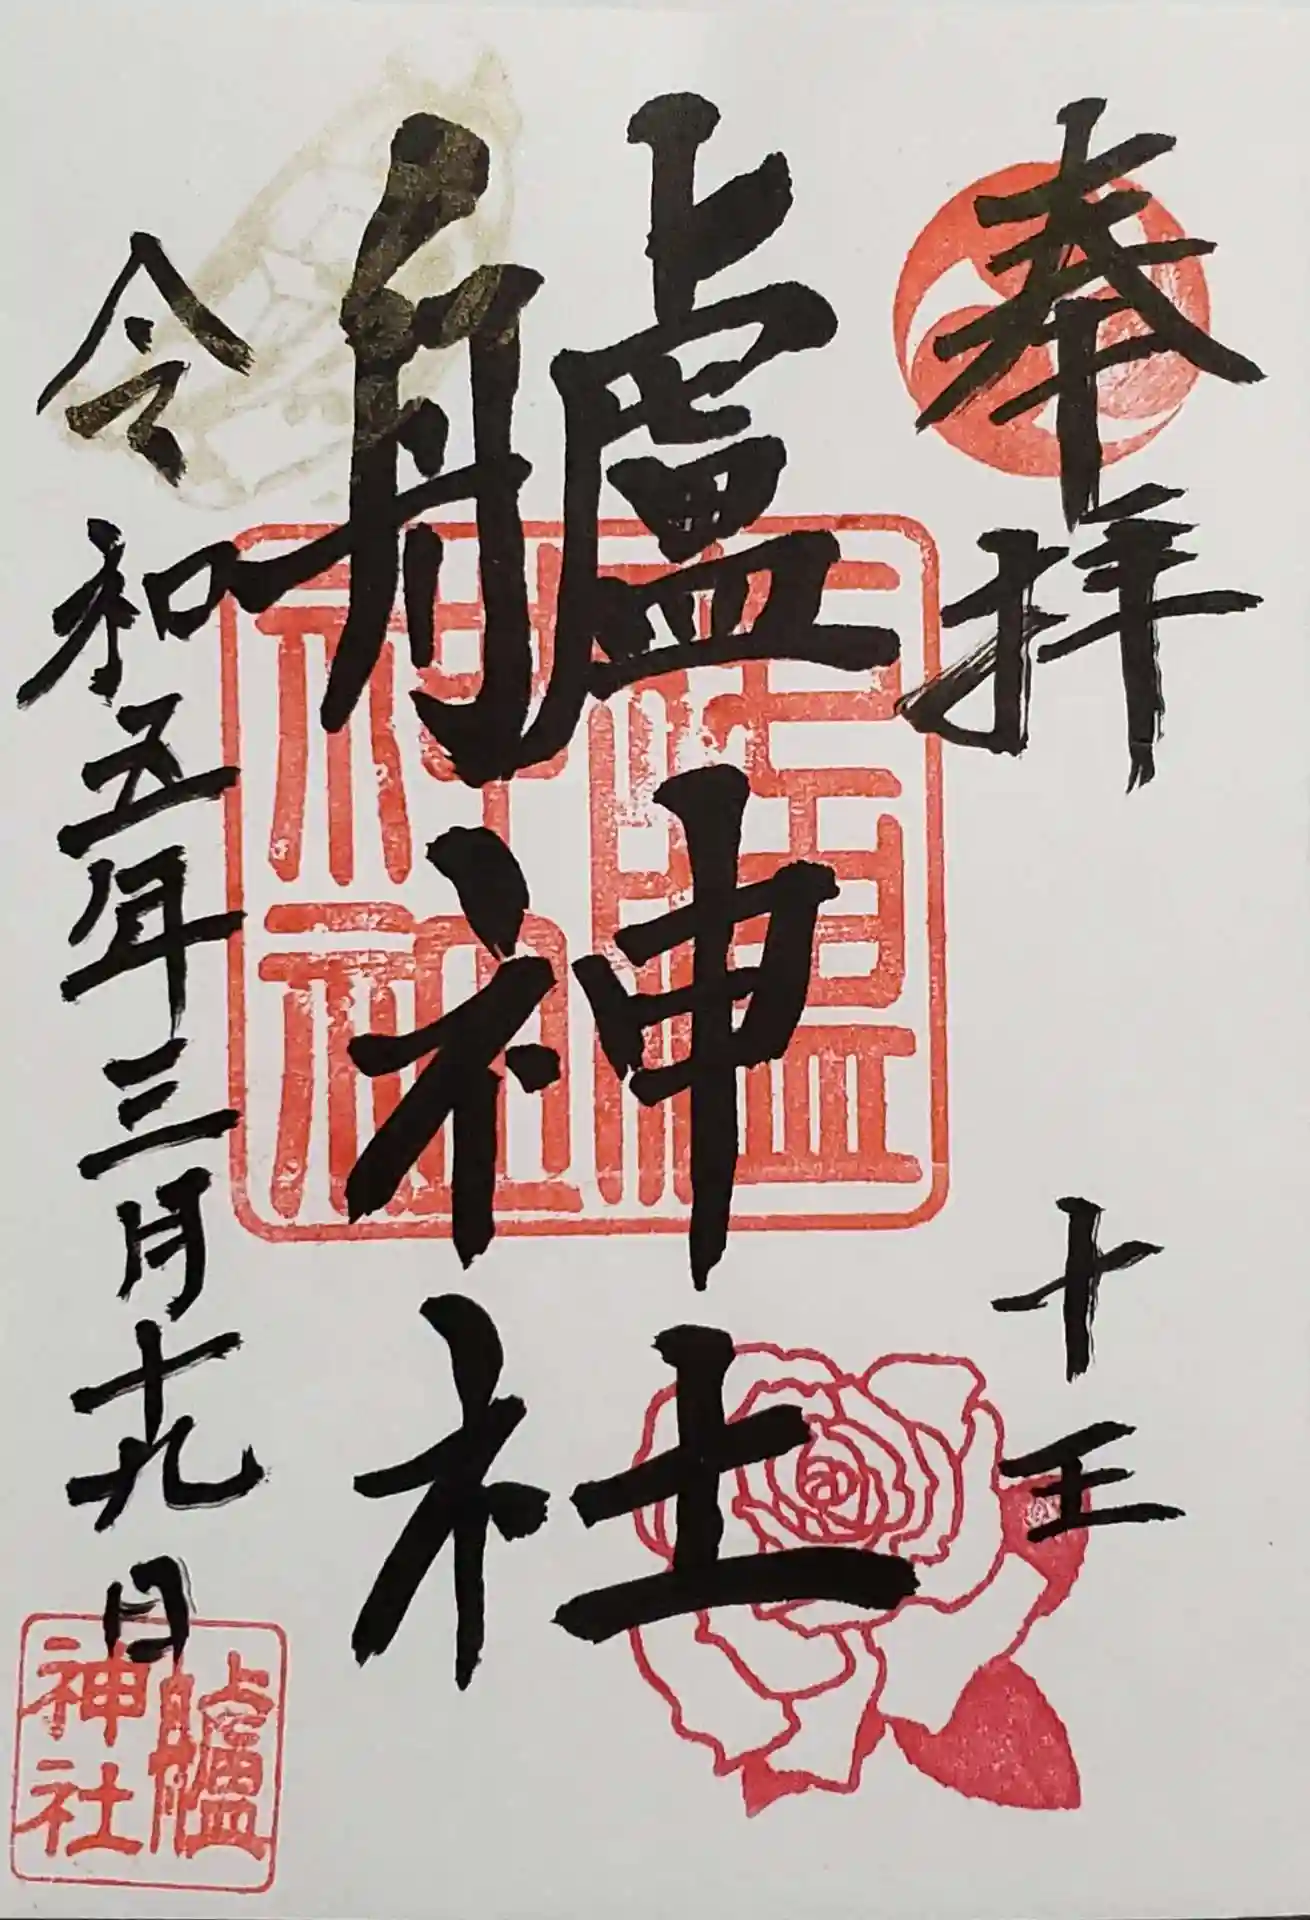 奉拝
十王
艫神社
令和五年三月十九日
艫神社
艫神社